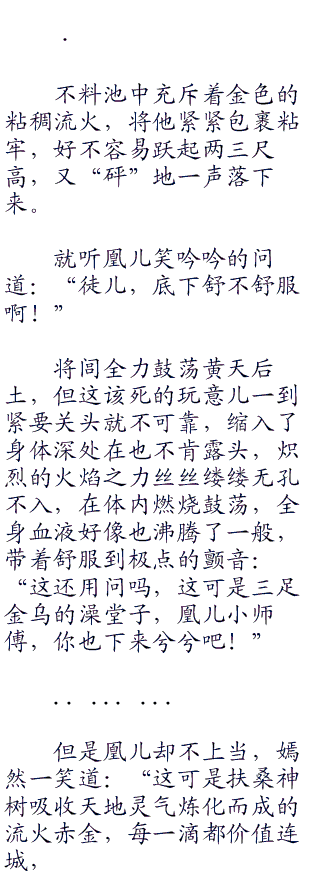 .
不料池中充斥着金色的
粘稠流火，将他紧紧包裹粘
牢，好不容易跃起两三尺
高，又“砰”地一声落下
来。
就听凰儿笑吟吟的问
道：“徒儿，底下舒不舒服
啊！”
将闾全力鼓荡黄天后
土，但这该死的玩意儿一到
紧要关头就不可靠，缩入了
身体深处在也不肯露头，炽
烈的火焰之力丝丝缕缕无孔
不入，在体内燃烧鼓荡，全
身血液好像也沸腾了一般，
带着舒服到极点的颤音：
“这还用问吗，这可是三足
金乌的澡堂子，凰儿小师
傅，你也下来兮兮吧！”
．．　．．．　．．．
但是凰儿却不上当，嫣
然一笑道：“这可是扶桑神
树吸收天地灵气炼化而成的
流火赤金，每一滴都价值连
城，